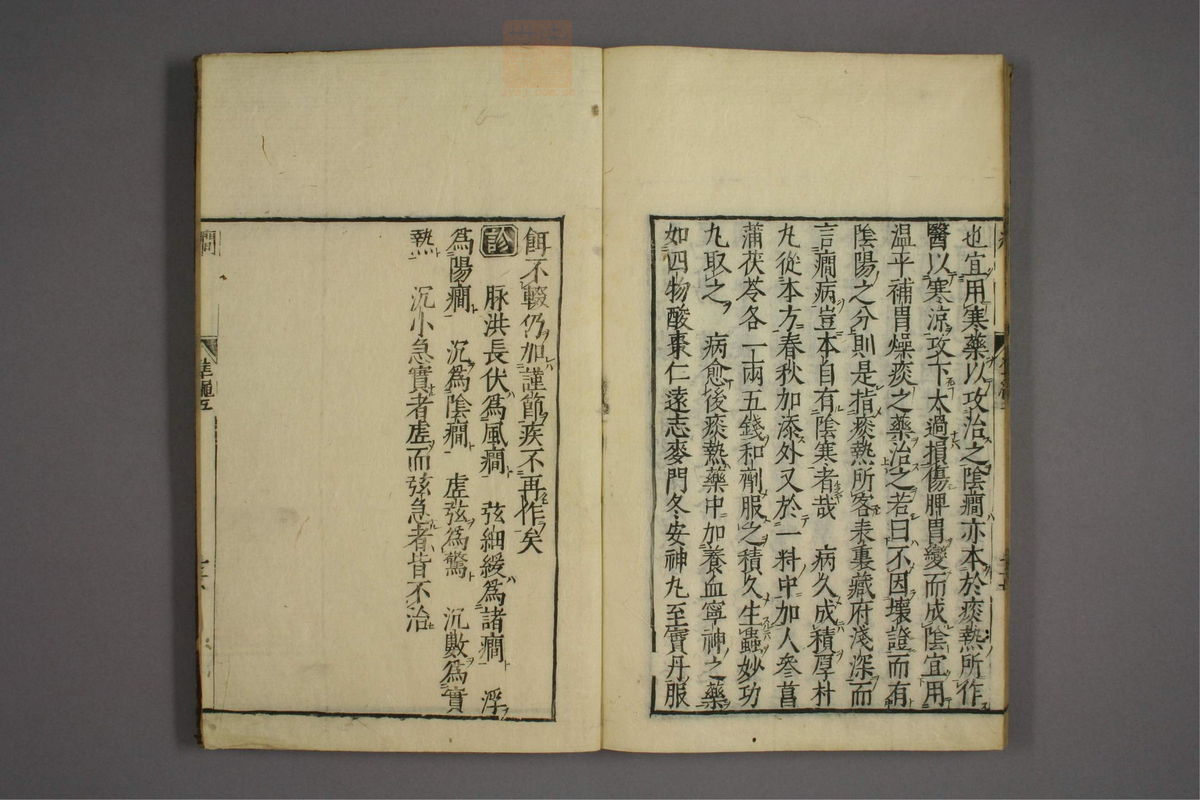 也宜用寒藥以攻治之陰癎亦本於痰熱所作
醫以寒涼攻下太過損傷脾胃變而成陰宜用
温平補胃燥痰之藥治之若曰不因壞證而有
陰陽之分則是指痰熱所客表裏藏府淺深而
言癎病豈本自有陰寒者哉　病久成積厚朴
九從本方春秋加添外又於一料中加人參菖
蒲茯苓各一兩五錢和劑服之積久生蟲妙功
九取之　病愈後痰熱藥中加養血寧神之藥
如四物酸棗仁遠志麥門冬安神九至寶丹服
餌不輟仍加謹節疾不再作矣
診　脉洪長伏爲風癎　弦細緩爲諸癎　浮
爲陽癎　沉爲陰癎　虛弦爲驚　沉數爲實
熱　沉小急實者虛而弦急者皆不治